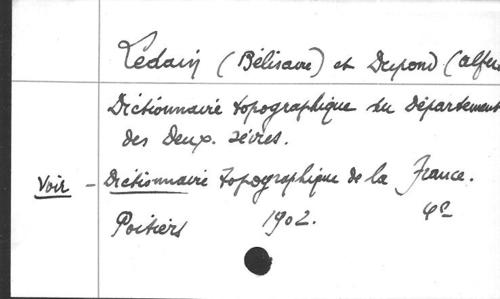 Ledain (Bélisaire) et Dupond (Alfred
Dictionnaire topographique du Département
des Deux-Sèvres.
Voir - Dictionnaire topographique de la France.
Poitiers 1902. 4º